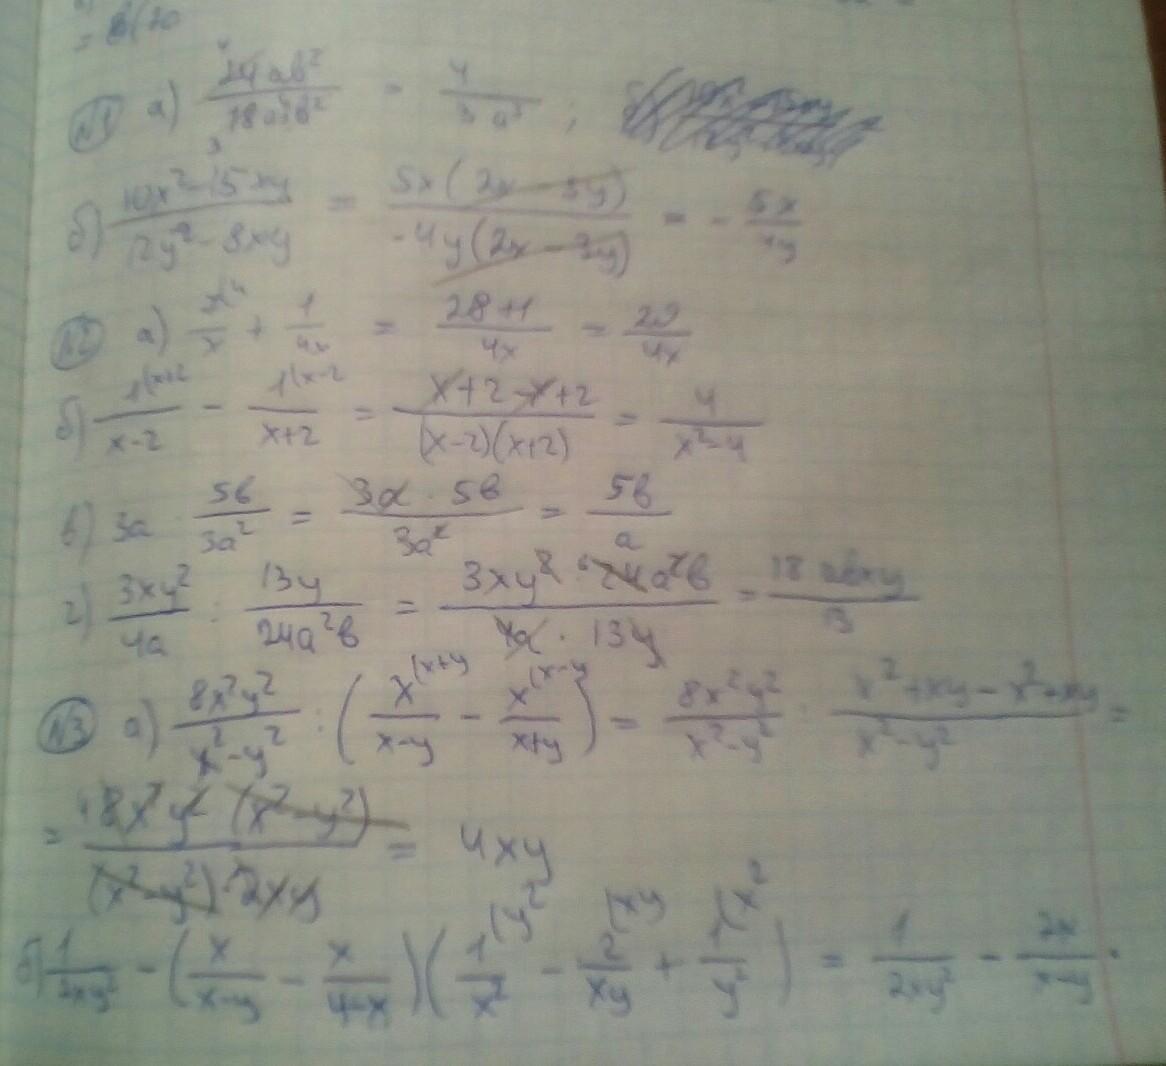 = 8(20
№1 а) 24ab²/18a³b² = 4/3a² ;
б) (10x²-15xy)/(12y²-8xy) = 5x(2x-3y)/-4y(2x-3y) = - 5x/4y
№2 а) 7(4/x + 1/4x = (28+1)/4x = 29/4x
б) 1(x+2/(x-2) - 1(x-2/(x+2) = (x+2-x+2)/(x-2)(x+2) = 4/(x²-4)
в) 3a · 5b/3a² = (3a · 5b)/3a² = 5b/a
г) 3xy²/4a : 13y/24a²b = (3xy² · ⁶24a²b)/(4a · 13y) = 18abxy/13
№3 а) 8x²y²/(x²-y²) : (x(x+y/(x-y) - x(x-y/(x+y)) = 8x²y²/(x²-y²) : (x²+xy-x²+xy)/(x²-y²) =
= ⁴8x²y² (x²-y²)/(x²-y²) · 2xy = 4xy
б) 1/2xy² - (x/(x-y) - x/(y-x))(1(y²/x² - 2(xy/xy + 1(x²/y²) = 1/2xy² - 2x/(x-y) ·